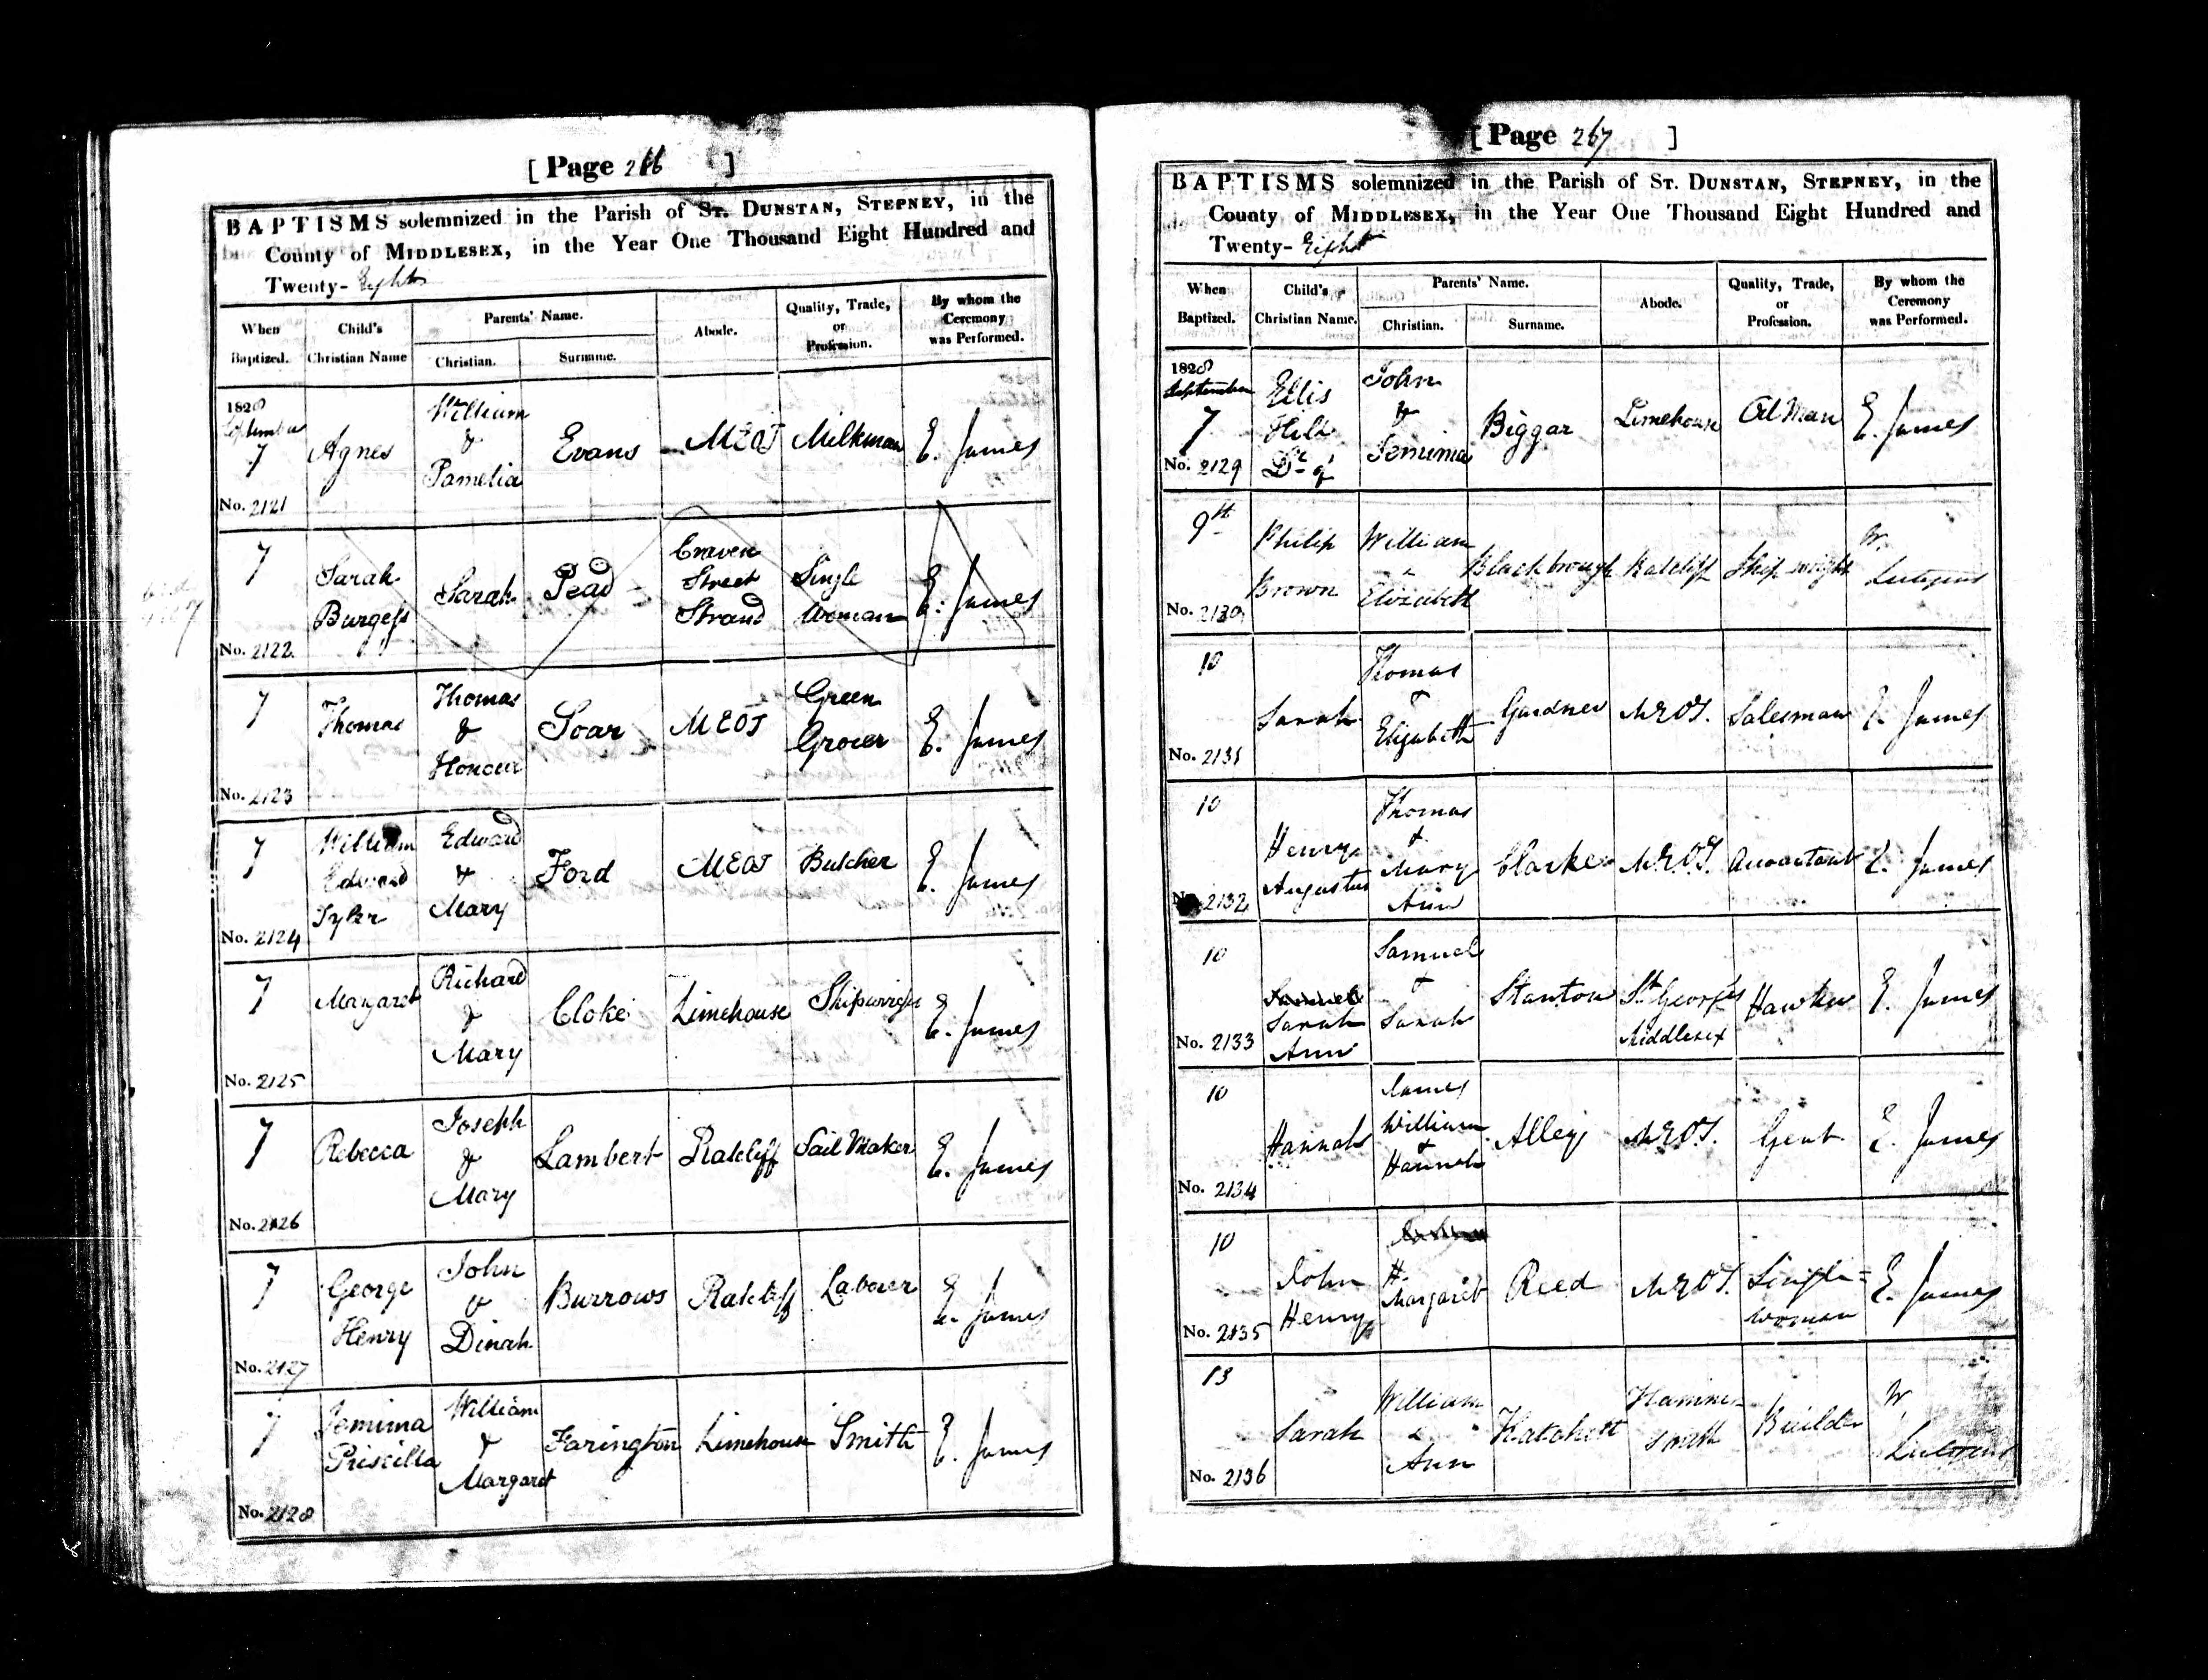 [ Page 266 ]
BAPTISMS solemnized in the Parish of ST. DUNSTAN, STEPNEY, in the
County of MIDDLESEX, in the Year One Thousand Eight Hundred and
Twenty- Eight
When Baptized. Child's Christian Name Parents' Name. Christian. Surname. Abode. Quality, Trade, or Profession. By whom the Ceremony was Performed.
1828 September 7 No. 2121 Agnes William & Pamelia Evans MEOT Milkman E. James
7 No. 2122 Sarah Burgess Sarah Pead Craven Street Strand Single Woman E. James
7 No. 2123 Thomas Thomas & Honour Soar MEOT Green Grocer E. James
7 No. 2124 William Edward Tyler Edward & Mary Ford MEOT Butcher E. James
7 No. 2125 Margaret Richard & Mary Cloke Limehouse Shipwright E. James
7 No. 2126 Rebecca Joseph & Mary Lambert Ratcliff Sail Maker E. James
7 No. 2127 George Henry John & Dinah Burrows Ratcliff Laborer E. James
7 No. 2128 Jemima Priscilla William & Margaret Farington Limehouse Smith E. James
[ Page 267 ]
BAPTISMS solemnized in the Parish of ST. DUNSTAN, STEPNEY, in the
County of MIDDLESEX, in the Year One Thousand Eight Hundred and
Twenty- Eight
When Baptized. Child's Christian Name. Parents' Name. Christian. Surname. Abode. Quality, Trade, or Profession. By whom the Ceremony was Performed.
1828 September 7 No. 2129 Ellis Hill Dr of John & Jemima Biggar Limehouse Oil Man E. James
9th No. 2130 Philip Brown William & Elizabeth Blackbrough Ratcliff Ship wright W.
10 No. 2131 Sarah Thomas & Elizabeth Gardner MEOT. Salesman E. James
10 No. 2132 Henry Augustus Thomas & Mary Ann Clarke MEOT. Accountant E. James
10 No. 2133 Samuel Sarah Ann Samuel & Sarah Stanton St George's Middlesex Hawker E. James
10 No. 2134 Hannah James William & Hannah Alley MEOT. Gent E. James
10 No. 2135 John Henry H. Margaret Reed MEOT. Single= woman E. James
13 No. 2136 Sarah William & Ann Hatchett Hammer- smith Builder W.